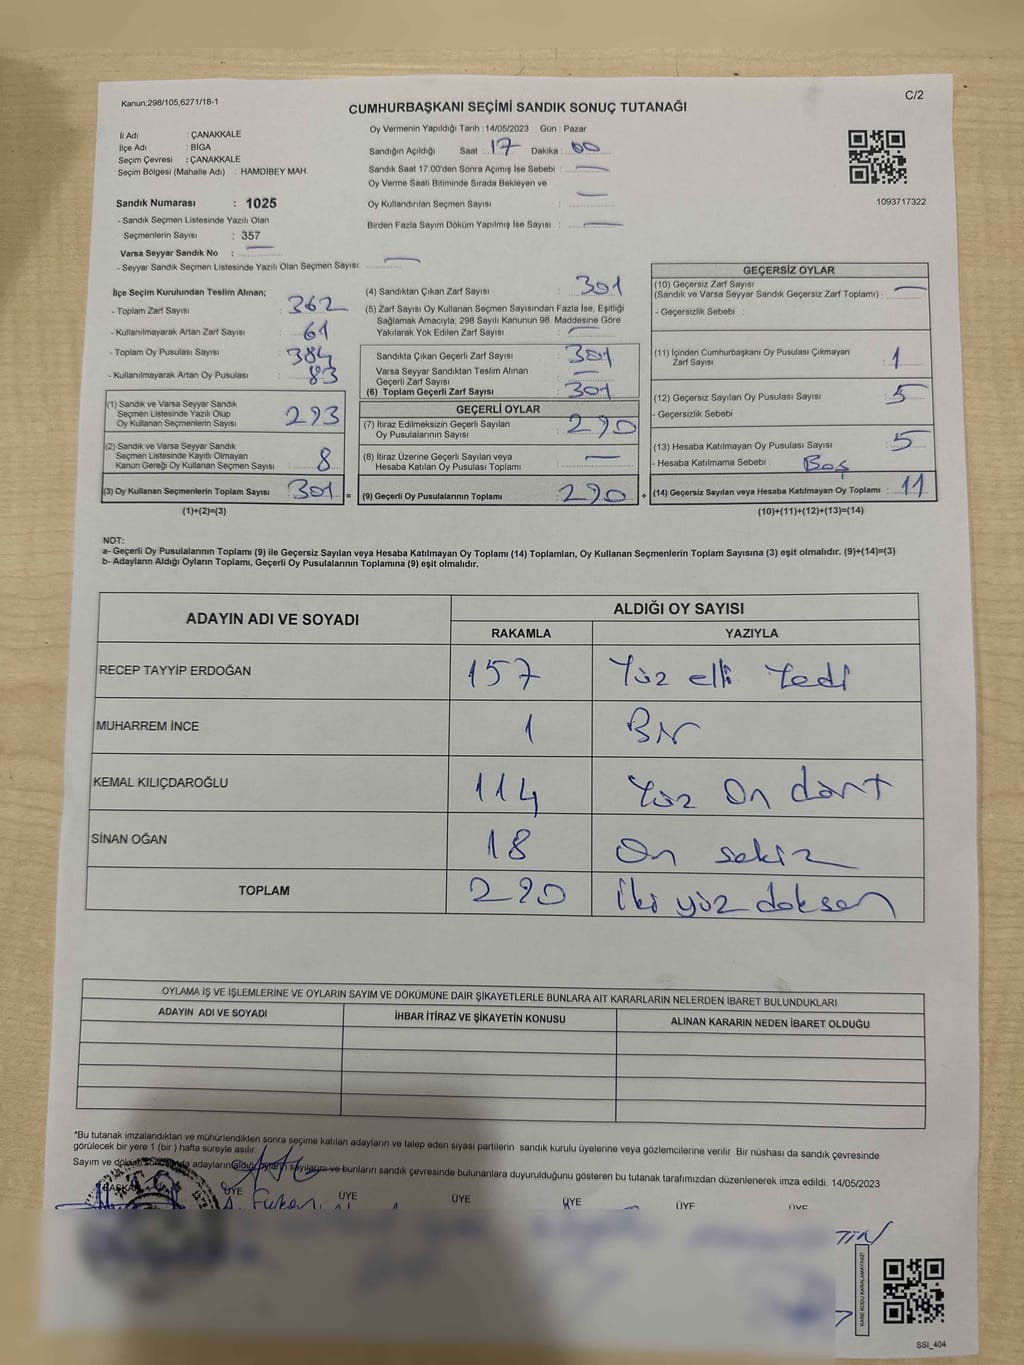 Kanun;298/105;6271/18-1
C/2
CUMHURBAŞKANI SEÇİMİ SANDIK SONUÇ TUTANAĞI
İl Adı : ÇANAKKALE
İlçe Adı : BİGA
Seçim Çevresi : ÇANAKKALE
Seçim Bölgesi (Mahalle Adı) : HAMDİBEY MAH.
Sandık Numarası : 1025
- Sandık Seçmen Listesinde Yazılı Olan
Seçmenlerin Sayısı : 357
Varsa Seyyar Sandık No :
- Seyyar Sandık Seçmen Listesinde Yazılı Olan Seçmen Sayısı:
Oy Vermenin Yapıldığı Tarih :14/05/2023 Gün : Pazar
Sandığın Açıldığı Saat : 17 Dakika : 00
Sandık Saat 17:00'den Sonra Açılmış İse Sebebi :
Oy Verme Saati Bitiminde Sırada Bekleyen ve
Oy Kullandırılan Seçmen Sayısı :
Birden Fazla Sayım Döküm Yapılmış İse Sayısı :
1093717322
İlçe Seçim Kurulundan Teslim Alınan;
- Toplam Zarf Sayısı : 362
- Kullanılmayarak Artan Zarf Sayısı : 61
- Toplam Oy Pusulası Sayısı : 384
- Kullanılmayarak Artan Oy Pusulası : 83
(1) Sandık ve Varsa Seyyar Sandık
Seçmen Listesinde Yazılı Olup
Oy Kullanan Seçmenlerin Sayısı : 293
(2) Sandık ve Varsa Seyyar Sandık
Seçmen Listesinde Kayıtlı Olmayan
Kanun Gereği Oy Kullanan Seçmen Sayısı : 8
(3) Oy Kullanan Seçmenlerin Toplam Sayısı : 301 =
(1)+(2)=(3)
(4) Sandıktan Çıkan Zarf Sayısı : 301
(5) Zarf Sayısı Oy Kullanan Seçmen Sayısından Fazla İse, Eşitliği
Sağlamak Amacıyla; 298 Sayılı Kanunun 98. Maddesine Göre
Yakılarak Yok Edilen Zarf Sayısı :
Sandıkta Çıkan Geçerli Zarf Sayısı : 301
Varsa Seyyar Sandıktan Teslim Alınan
Geçerli Zarf Sayısı :
(6) Toplam Geçerli Zarf Sayısı : 301
GEÇERLİ OYLAR
(7) İtiraz Edilmeksizin Geçerli Sayılan
Oy Pusulalarının Sayısı : 290
(8) İtiraz Üzerine Geçerli Sayılan veya
Hesaba Katılan Oy Pusulası Toplamı :
(9) Geçerli Oy Pusulalarının Toplamı : 290 +
GEÇERSİZ OYLAR
(10) Geçersiz Zarf Sayısı
(Sandık ve Varsa Seyyar Sandık Geçersiz Zarf Toplamı) :
- Geçersizlik Sebebi :
(11) İçinden Cumhurbaşkanı Oy Pusulası Çıkmayan
Zarf Sayısı : 1
(12) Geçersiz Sayılan Oy Pusulası Sayısı : 5
- Geçersizlik Sebebi :
(13) Hesaba Katılmayan Oy Pusulası Sayısı : 5
- Hesaba Katılmama Sebebi : Boş
(14) Geçersiz Sayılan veya Hesaba Katılmayan Oy Toplamı : 11
(10)+(11)+(12)+(13)=(14)
NOT:
a- Geçerli Oy Pusulalarının Toplamı (9) ile Geçersiz Sayılan veya Hesaba Katılmayan Oy Toplamı (14) Toplamları, Oy Kullanan Seçmenlerin Toplam Sayısına (3) eşit olmalıdır. (9)+(14)=(3)
b- Adayların Aldığı Oyların Toplamı, Geçerli Oy Pusulalarının Toplamına (9) eşit olmalıdır.
ADAYIN ADI VE SOYADI ALDIĞI OY SAYISI
RAKAMLA YAZIYLA
RECEP TAYYİP ERDOĞAN 157 Yüz elli Yedi
MUHARREM İNCE 1 Bir
KEMAL KILIÇDAROĞLU 114 Yüz On dört
SİNAN OĞAN 18 On sekiz
TOPLAM 290 İki yüz doksan
OYLAMA İŞ VE İŞLEMLERİNE VE OYLARIN SAYIM VE DÖKÜMÜNE DAİR ŞİKAYETLERLE BUNLARA AİT KARARLARIN NELERDEN İBARET BULUNDUKLARI
ADAYIN ADI VE SOYADI İHBAR İTİRAZ VE ŞİKAYETİN KONUSU ALINAN KARARIN NEDEN İBARET OLDUĞU
*Bu tutanak imzalandıktan ve mühürlendikten sonra seçime katılan adayların ve talep eden siyasi partilerin sandık kurulu üyelerine veya gözlemcilerine verilir. Bir nüshası da sandık çevresinde
görülecek bir yere 1 (bir ) hafta süreyle asılır.
Sayım ve döküm sonucunda adayların aldığı oyların sayılarını ve bunların sandık çevresinde bulunanlara duyurulduğunu gösteren bu tutanak tarafımızdan düzenlenerek imza edildi. 14/05/2023
BAŞKAN ÜYE ÜYE ÜYE ÜYE ÜYE ÜYE
KARE KODU KARALAMAYINIZ!
SSİ_404